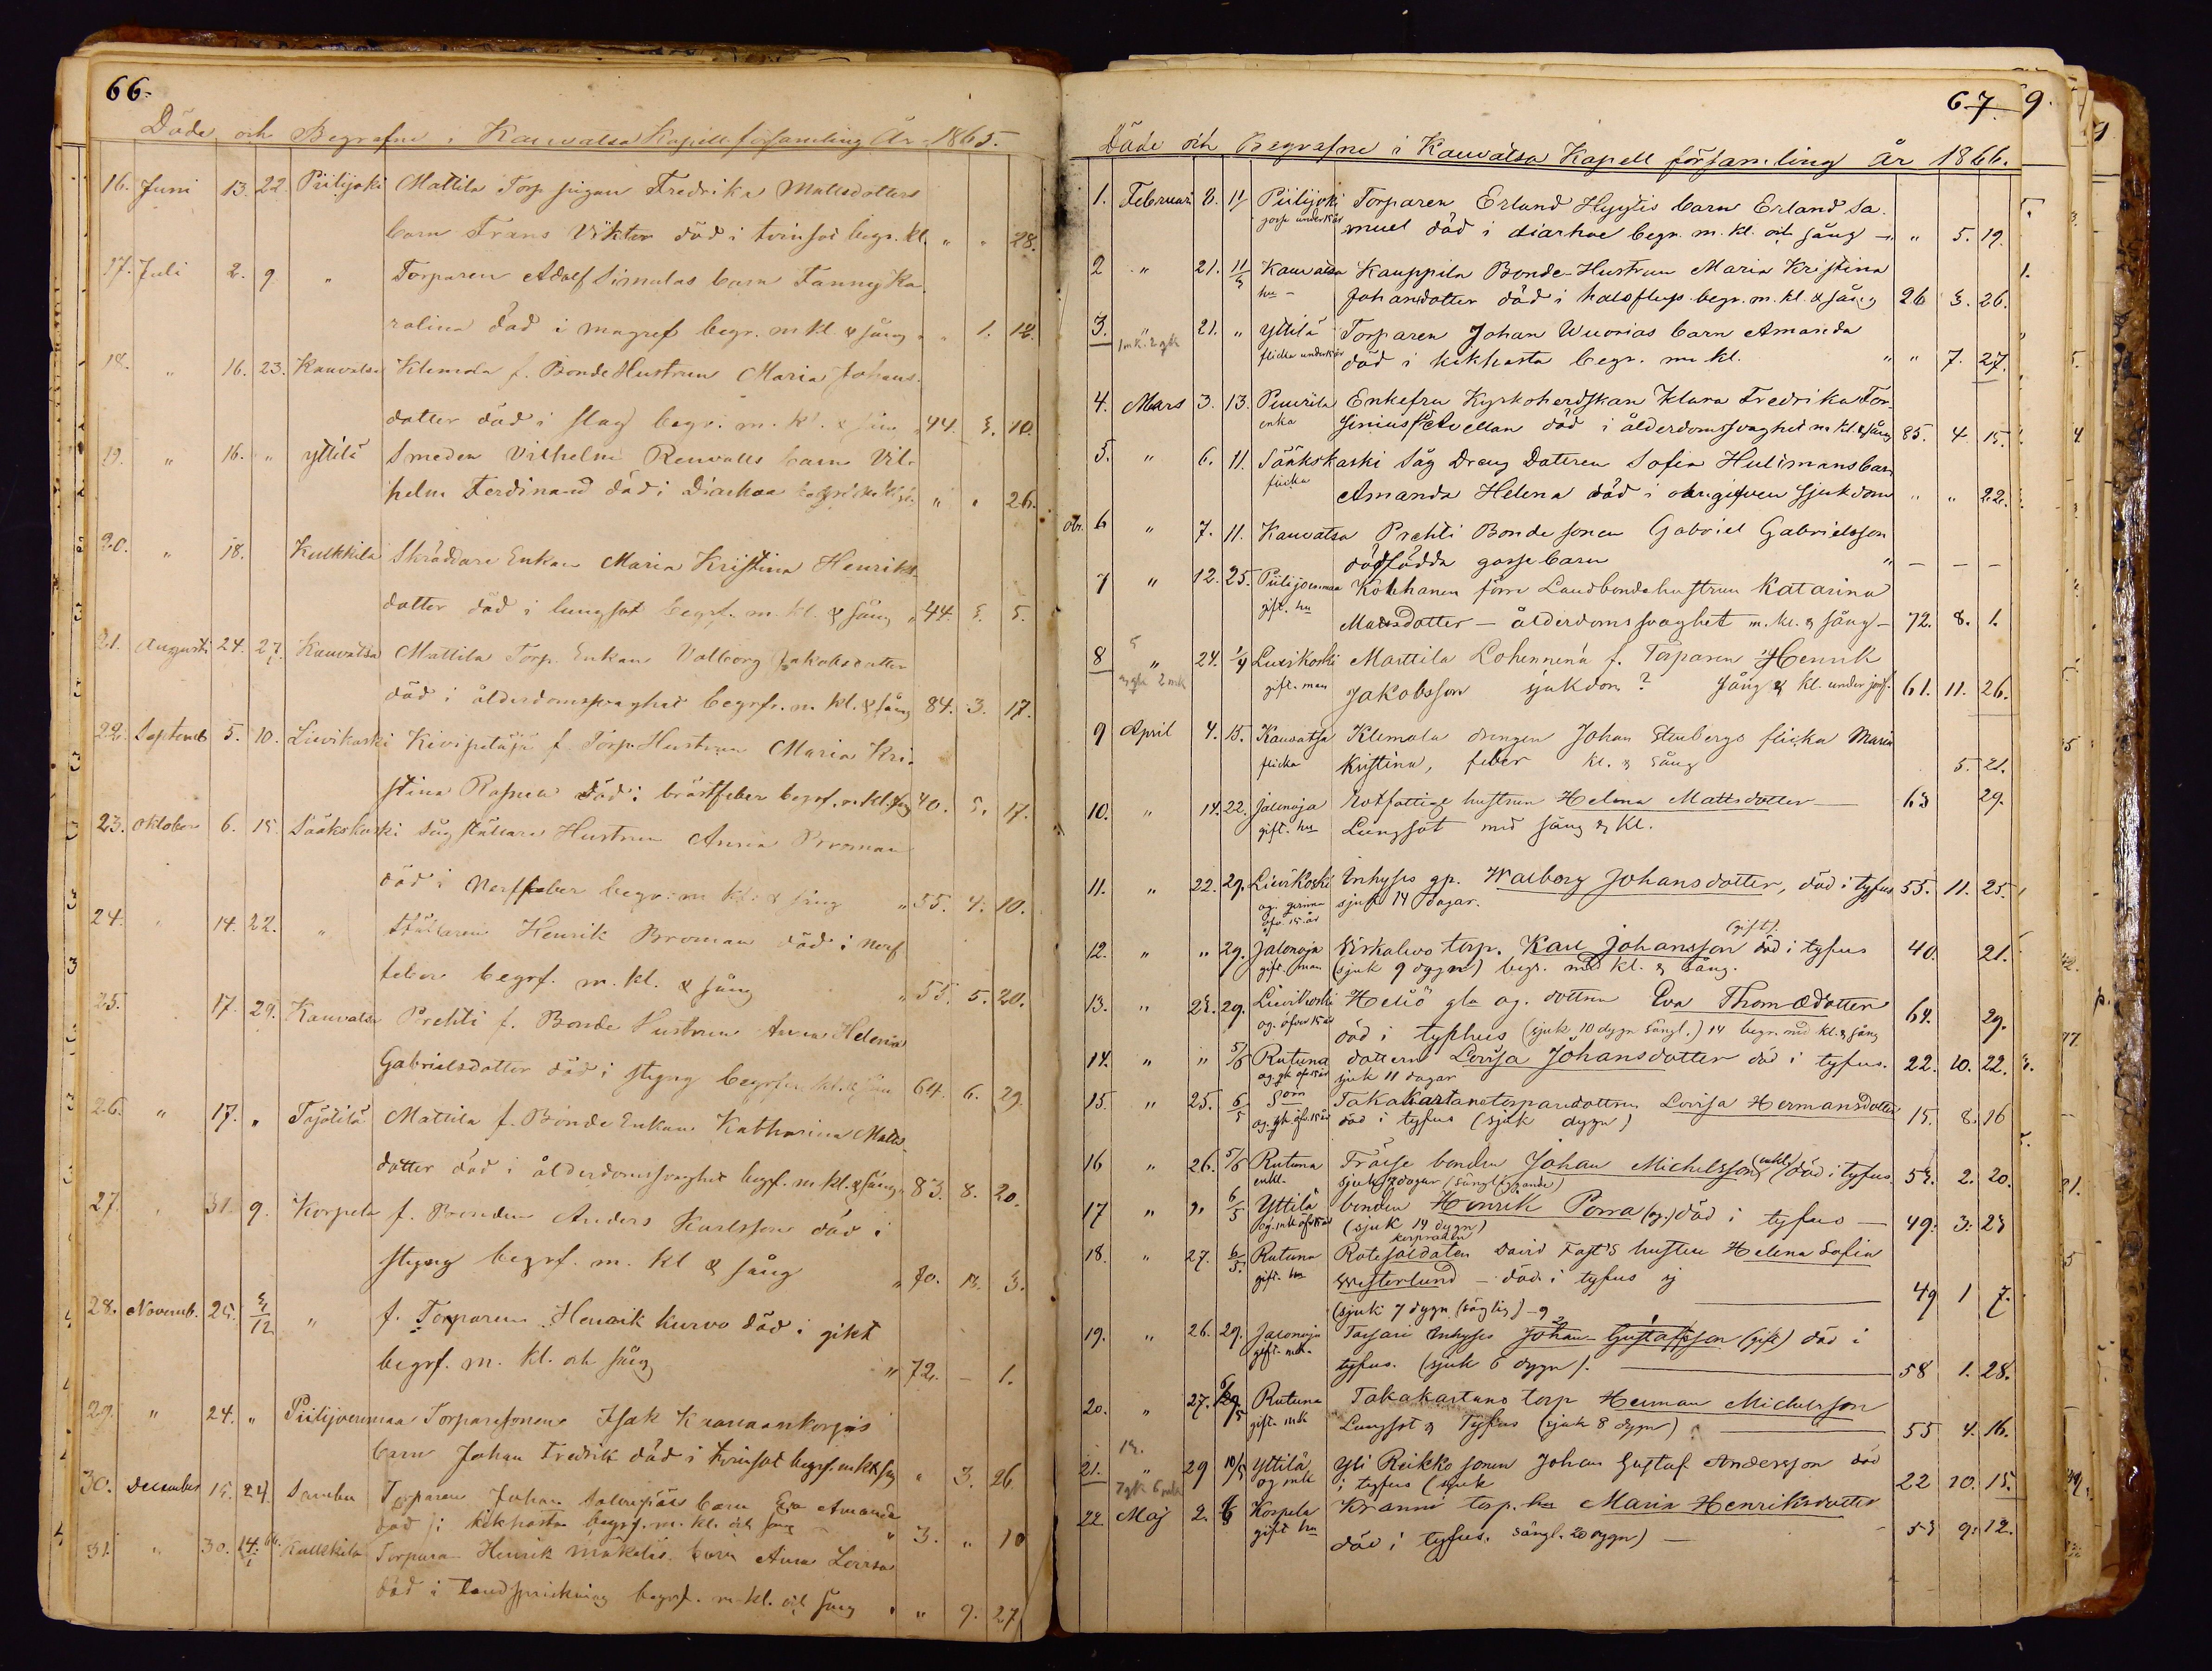 66.
Döde och Begrafne i Kauvatsa Kapellförsamling År 1865.
16. Juni 13. 22. Piilijoki Mattila Torp pigan Fredrika Mattsdotters
barn Frans Viktor död i tvinsot begr. kl. " " 28.
17. Juli 2. 9 " Torparen Adolf Simulas barn Fanny Ka-
rolina död i magref begr. m kl & sång " 1. 12.
18. " 16. 23. Kauvatsa Klemola f. Bonde Hustrun Maria Johans-
dotter död i slag begr. m. kl. & sång 44. 3. 10.
19. " 16. " Yttilä Smeden Vilhelm Renvalls barn Vil-
helm Ferdinand död i Diarhaa " " 26.
20. " 18. Kulkkila Skräddare Enkan Maria Kristina Henriks-
dotter död i lungsot begrf. m. kl. & sång " 44. 3. 5.
21. Augusti 24. 27. Kauvatsa Mattila Torp. Enkan Valborg Jakobsdotter
död i ålderdomssvaghet begrf. m kl. & sång 84. 3. 17.
22. Septemb 5. 10. Lievikoski f. Torp. Hustrun Maria Kri-
stina död i bröstfeber begrf. m. kl. sng 40. 5. 17.
23. Oktober 6. 15. Sääkskoski Såg ställare Hustrun Anna Broman
död i Nerffeber begr. m kl. & sång " 55. 4. 10.
24. " 14. 22. " Ställaren Henrik Broman död i nerf
feber begrf. m. kl. & sång " 55. 5. 20.
25. 17. 29. Kauvatsa Prehti f. Bonde Hustrun Anna Helena
Gabrielsdotter död i styng begrf. m kl. & sång 64. 6. 29.
26. " 17. " Mattila f. Bonde Enkan Katharina Matts-
dotter död i ålderdomssvaghet begrf. m. kl. & sång 83. 8. 20.
27. " 31. 9. Korpela f. Bonden Anders Karlsson död i
styng begrf. m. kl & sång " 70. 3.
28. Novemb. 25. 3/12 " f. Torparen Henrik Kurvo död i gikt
begrf. m. kl. och sång " 72. – 1.
29. " 24. " Piilijoenmaa Torparesonen Isak
barn Johan Fredrik död i tvinsot begrf. m kl & sg " 3. 26
30. December 15. 24. Torparen Johan barn Eva Amanda
död i kikhosta begrf. m. kl. och sång " 3. " 10
31. " 30. 14/1 66. Kulkkila Torpare Henrik Mäkeläs barn Anna Lovisa
död i Tandsprickning begrf. m kl. och sång " " 9. 27
67. 9.
Döde och Begrafne i Kauvatsa Kapell församling år 1866.
1. Februari 8. 11/ Piilijoki Torparen Erland Hyytis barn Erland Sa-
muel död i diarhoe begr. m. kl. och sång " 5. 19.
2 " 21. 11/3 Kauvatsa Kauppila Bonde-Hustrun Maria Kristina
hu – Johansdotter död i halsflus begr. m. kl. & sång 26 3. 26.
3. 21. " Yttilä Torparen Johan Wuorias barn Amanda
1 mk. 2 qk flicka under 15 år död i kikhosta begr. m kl. " " 7. 27.
4. Mars 3. 13. Puurila Enkefru Kyrkoherdskan Klara Fredrika For-
enka f. Avellan död i ålderdomssvaghet m kl. & sång 85. 4. 15.
5. " 6. 11. Sääkskoski Såg Dreng Dottren Sofia Hulimans barn
flicka Amanda Helena död i okngifven sjukdom " " 22.
ob. 6 " 7. 11. Kauvatsa Prehti Bonde sonen Gabriel Gabrielsson
dödfödda gosse barn " – – –
7 " 12. 25. Piilijoenmaa Kokhanen förre Landbondehustrun Katarina
gift. hu Matsdotter – ålderdomssvaghet m. kl. & sång – 72. 8. 1.
8 " 24. 1/4 Lievikoski Marttila Lohennena f. Torparen Henrik
gift. man Jakobsson sjukdom? sång & kl. under jord. 61. 11. 26.
9 April 4. 15. Kauvatsa Klemola drengen Johan Stenbergs flicka Maria
flicka Kristina, feber kl. & sång 5. 21.
10. " 14. 22. Jalonoja Rotfattige hustrun Helena Mattsdotter 63 29.
gift. hu Lungsot med sång & kl.
11. " 22. 29. Lievikoski Inhyses qp. Walborg Johansdotter, död i tyfus 55. 11. 25.
og. qvinna öfv 15 år sjuk 14 dagar.
(gift)
12. " " 29. Jalonoja torp. Karl Johansson död i tyfus 40. 21.
gift. man (sjuk 9 dygn) begr. med kl. & sång.
13. " 23. 29. Lievikoski Heliö gla og. dottren Eva Thomædotter 64. 29.
og. öfver 15 år död i typhus (sjuk 10 dygn sängl.) 14 begr. med kl. & sång
14. " " 5/5 Rutuna dottren Lovisa Johansdotter död i tyfus. 22. 10. 22.
og. qk öfv 15 år sjuk 11 dagar
15. " 25. 6/5 Som Takakartanotorparedottren Lovisa Hermansdotter 15. 8. 16
og. qk. öfv. 15 år död i tyfus (sjuk dygn)
16 " 26. 5/5 Rutuna bonden Johan Michelsson (enkl) död i tyfus. 53. 2. 20.
enkl. sjuk 7 dagar (sängliggande)
17 " " 6/5 Yttilä bonden Henrik Porra (og.) död i tyfus – 49. 3. 23
og. mk öfv 15 år (sjuk 14 dygn)
korpralen
18. " 27. 6/5. Rutuna Rotesoldaten David Fast's hustru Helena Sofia
gift. hu Westerlund – död i tyfus 49 1 7.
(sjuk 7 dygn (säglig) – 9
19. " 26. 29. Jalonoja Tarsari Inhyses Johan Gustafsson (gift) död i
gift. mk. tyfus. (sjuk 6 dygn). 58 1. 28.
20. " 27. Rutuna Takakartano torp Herman Michelsson
gift. mk Lungsot & Tyfus (sjuk 8 dygn) 55 4. 16.
21. " 29 10/5 Yttilä Yli Reikko sonen Johan Gustaf Andersson död
7 qk 6 mk og mk i tyfus (sjuk 22 10. 15.
22 Maj 2. Korpela Kranni torp. hu Maria Henriksdotter
gift hu död i tyfus. sängl. 20 dygn) – 53 9. 12.